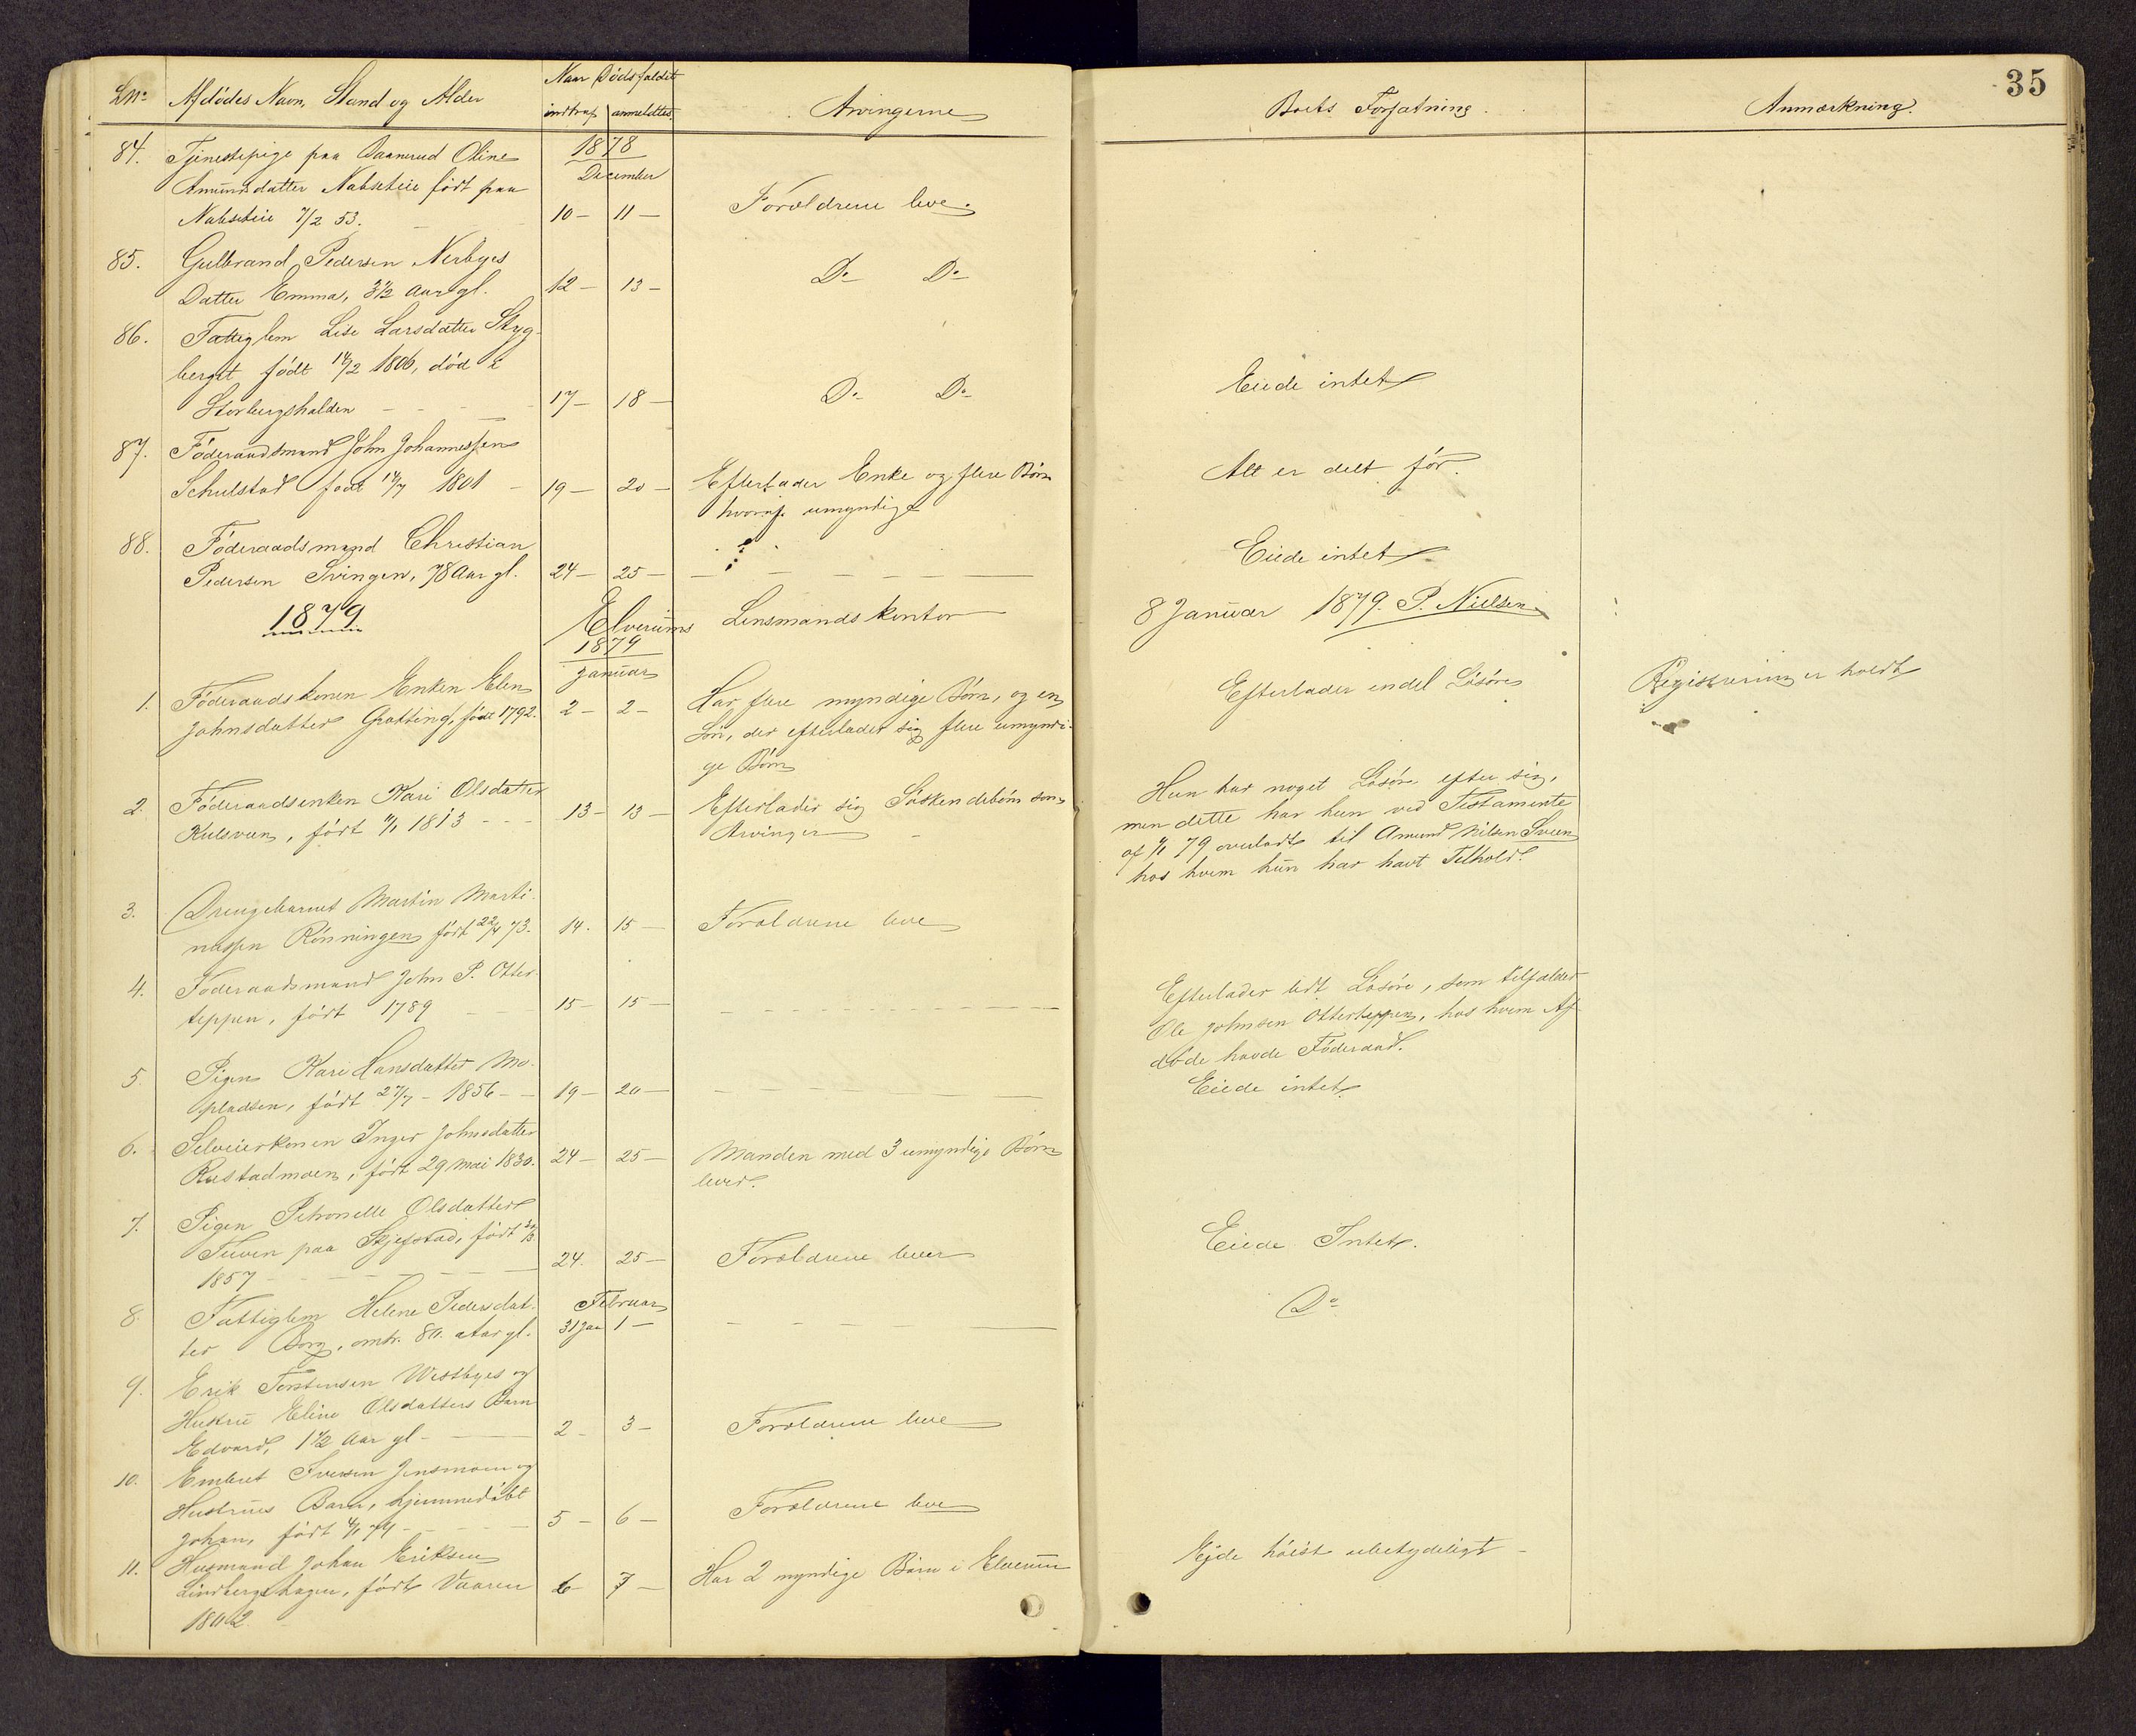 35
LNo Afdødes Navn, Stand og Alder Naar Dødsfaldet indtraf anmeldtes Arvingerne Boets Forfatning. Anmærkning.
1878
December
84. Tjenestepige paa Oline
Amundsdatter født paa
7/2 53. 10 — 11 — Forældrene leve.
85. Gulbrand Pedersen Nerbyes
Datter Emma, 3½ Aar gl. 12 — 13 — Do Do
86. Fattiglem Lise Larsdatter Skyg-
berget født 14/2 1806, død i
Storbergshalden 17 — 18 — Do Do Eiede intet
87. Føderaadsmand John Johannessen
Schulstad født 14/7 1801 19 — 20 — Efterlader Enke og flere Børn Alt er delt før.
hvoraf umyndige
88. Føderaadsmand Christian
Pedersen Svingen, 78 Aar gl. 24 — 25 — ? Eiede intet
1879 Elverums Lensmandskontor 8 Januar 1879. P. Nielsen
1879
Januar
1. Føderaadskonen Enken Elen
Johnsdatter Grøtting, født 1792. 2 — 2 — Har flere myndige Børn, og en Efterlader endel Løsøre Registrering er holdt
Søn, der efterlader sig flere umyndi-
ge Børn
2. Føderaadsenken Kari Olsdatter
Kulsveen, født 1813 13 — 13 — Efterlader sig Søskendebørn som
Arvinger
Hun har noget Løsøre efter sig,
men dette har hun ved Testamente
af 79 overladt til Amund Nilsen Sveen
hos hvem hun har havt Tilhold.
3. Drengebarnet Martin Marti-
nussen Rønningen født 22/4 73. 14. 15 — Forældrene leve
4. Føderaadsmand John P. Otter-
teppen, født 1789 15 — 15 —
Efterlader lidt Løsøre, som tilfalder
Ole Johnsen Otterteppen, hos hvem Af-
døde havde Føderaad.
5. Pigen Kari Hansdatter Mo-
pladsen, født 27/7 - 1856 - 19 — 20 — Eiede intet
6. Selveierkonen Inger Johnsdatter
Rustadmoen, født 29 Mai 1830. 24 — 25 — Manden med 3 umyndige Børn
lever.
7. Pigen Petronelle Olsdatter
paa Skjefstad, født
1857 24. 25 — Forældrene lever Eiede Intet.
Februar
8. Fattiglem Helene Pedersdat-
ter Borg, omtr. 80 Aar gl. 31 Jan 1 — Do
9. Erik Torstensen Westbyes og
Hustru Eline Olsdatters Barn
Edvard, 1½ Aar gl. 2 — 3 — Forældrene leve
10. Embret Iversen Jensmoen og
Hustrues Barn, hjemmedøbt
Johan, født 4/1 79 5 — 6 — Forældrene leve
11. Husmand Johan Eriksen
Lindbergshagen, født Vaaren 6 — 7 — Har 2 myndige Børn i Elverum Ejede høist ubetydeligt
1802